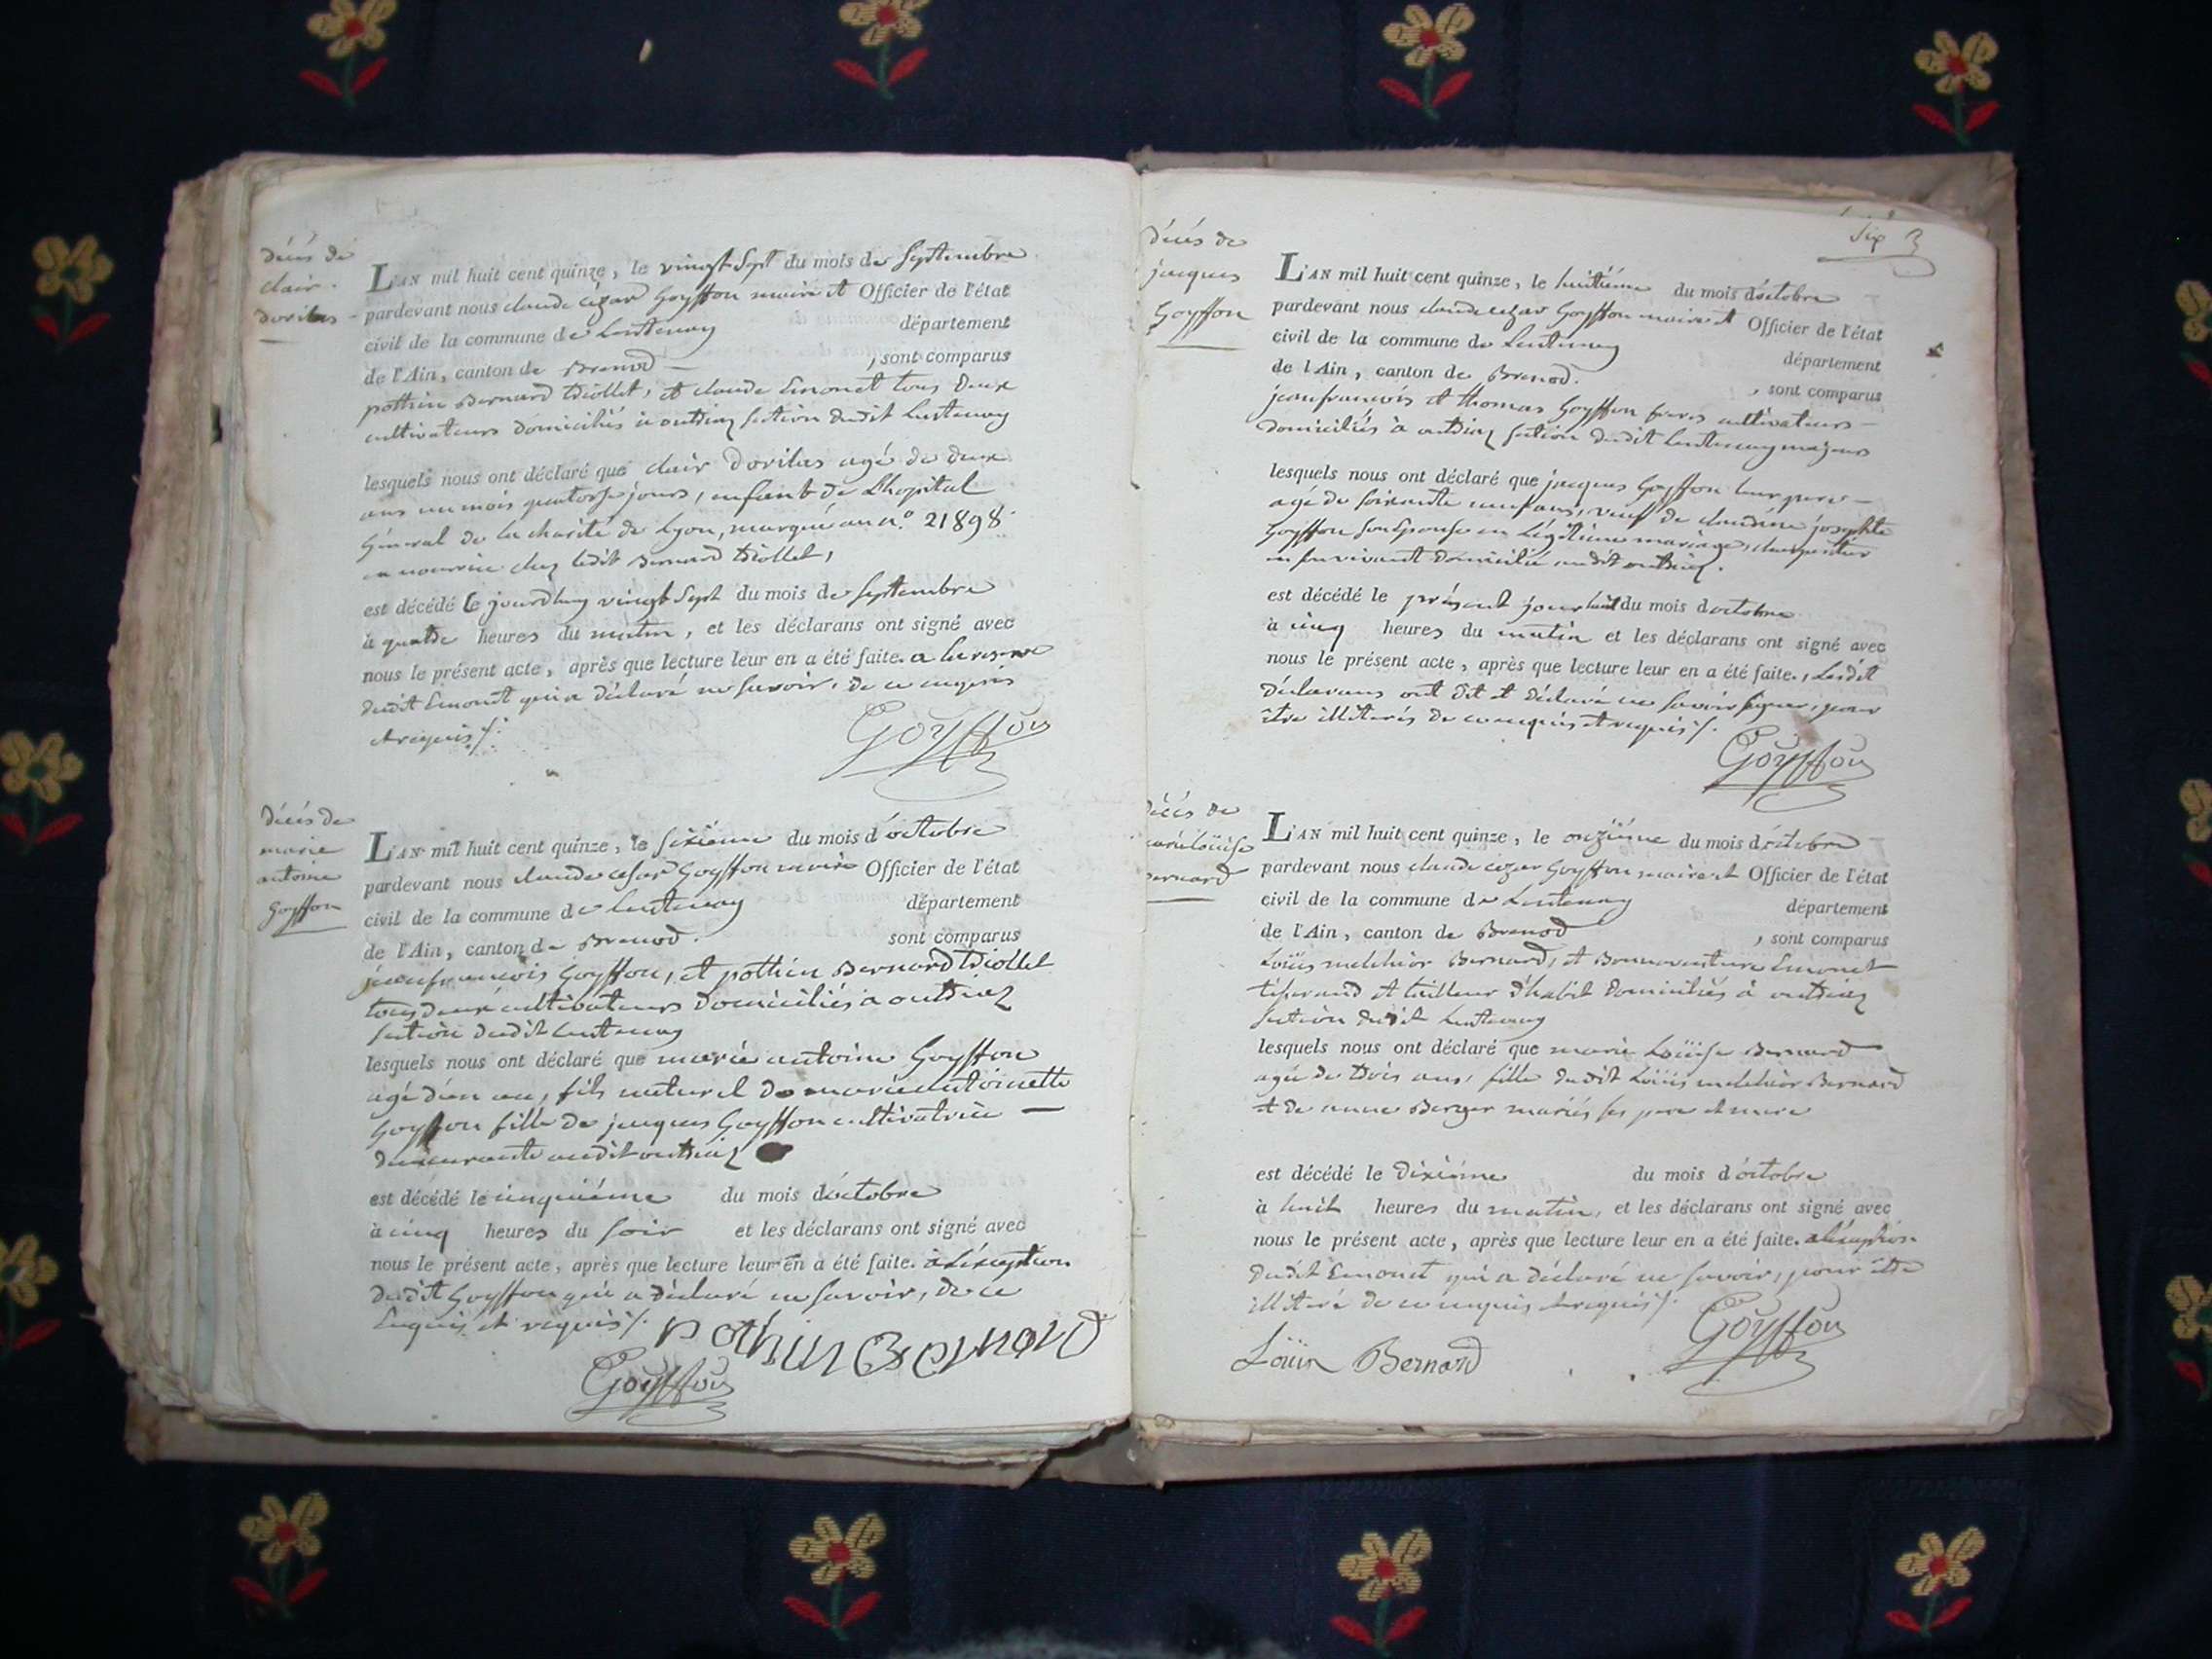 décés de
clair
dorilas
L'AN mil huit cent quinze, le vingt sept du mois de Septembre
pardevant nous claude cézar Goyffon maire et Officier de l'état
civil de la commune de Lentenay département
de l'Ain, canton de Brenod , sont comparus
pothin Bernard Diollet, et claude Emonet tous deux
cultivateurs domiciliés à outriaz section dudit Lentenay
lesquels nous ont déclaré que clair Dorilas agé de deux
ans un mois quatorze jours, enfant de L'hopital
Général de la charité de Lyon, marqué au n.o 21898
en nourrice chez ledit Bernard Diollet,
est décédé le jourdhuy vingt Sept du mois de Septembre
à quatre heures du matin, et les déclarans ont signé avec
nous le présent acte, après que lecture leur en a été faite. a la reserve
dudit Emonet qui a déclaré ne savoir, de ce enquis
et requis /.
Goyffon
décés de
marie
antoine
Goyffon
L'AN mil huit cent quinze, le sixième du mois d'octobre
pardevant nous claude cesar Goyffon maire Officier de l'état
civil de la commune de Lentenay département
de l'Ain, canton de Brenod. sont comparus
jeanfrancois Goyffon, et pothin Bernard Diollet
tous deux cultivateurs domiciliés a outriaz
section dudit Lentenay
lesquels nous ont déclaré que marie antoine Goyffon
agé d'un an, fils naturel de marie antoinette
Goyffon fille de jacques Goyffon cultivatrice
demeurante audit outriaz
est décédé le cinquième du mois d'octobre
à cinq heures du soir et les déclarans ont signé avec
nous le présent acte, après que lecture leur en a été faite. à L'exception
dudit Goyffon qui a déclaré ne savoir, de ce
Enquis et requis /. pothin Bernard
Goyffon
Six
décés de
jacques
Goyffon
L'AN mil huit cent quinze, le huitième du mois d'octobre
pardevant nous claude cezar Goyffon maire et Officier de l'état
civil de la commune de Lentenay département
de l'Ain, canton de Brenod. , sont comparus
jeanfrancois et thomas Goyffon freres cultivateurs
domiciliés à outriaz section dudit Lentenay majeurs
lesquels nous ont déclaré que jacques Goyffon leur pere
agé de soixante neuf ans, veuf de claudine josephte
Goyffon son Epouse en Légitime mariage, charpentier
en son vivant domicilié audit outriaz.
est décédé le présent jour huit du mois d'octobre
à cinq heures du matin et les déclarans ont signé avec
nous le présent acte, après que lecture leur en a été faite., Lesdit
déclarans ont dit et déclaré ne savoir signer, pour
être illiterés de ce enquis et requis /.
Goyffon
décés de
marie Loüise
Bernard
L'AN mil huit cent quinze, le onzième du mois d'octobre
pardevant nous claude cezar Goyffon maire et Officier de l'état
civil de la commune de Lentenay département
de l'Ain, canton de Brenod , sont comparus
Loüis melchior Bernard, et Bonnaventure Emonet
tisserand et tailleur d'habit domiciliés à outriaz
section dudit Lentenay
lesquels nous ont déclaré que marie Loüise Bernard
agée de trois ans, fille dudit Loüis melchior Bernard
et de anne Berger mariés ses pere et mere
est décédé le dixième du mois d'octobre
à huit heures du matin, et les déclarans ont signé avec
nous le présent acte, après que lecture leur en a été faite. a L'exception
dudit Emonet qui a déclaré ne savoir, pour être
illiteré de ce enquis et requis /.
Loüis Bernard Goyffon